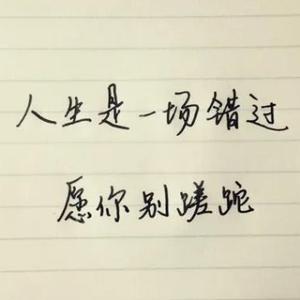 人生是一场错过
愿你别蹉跎